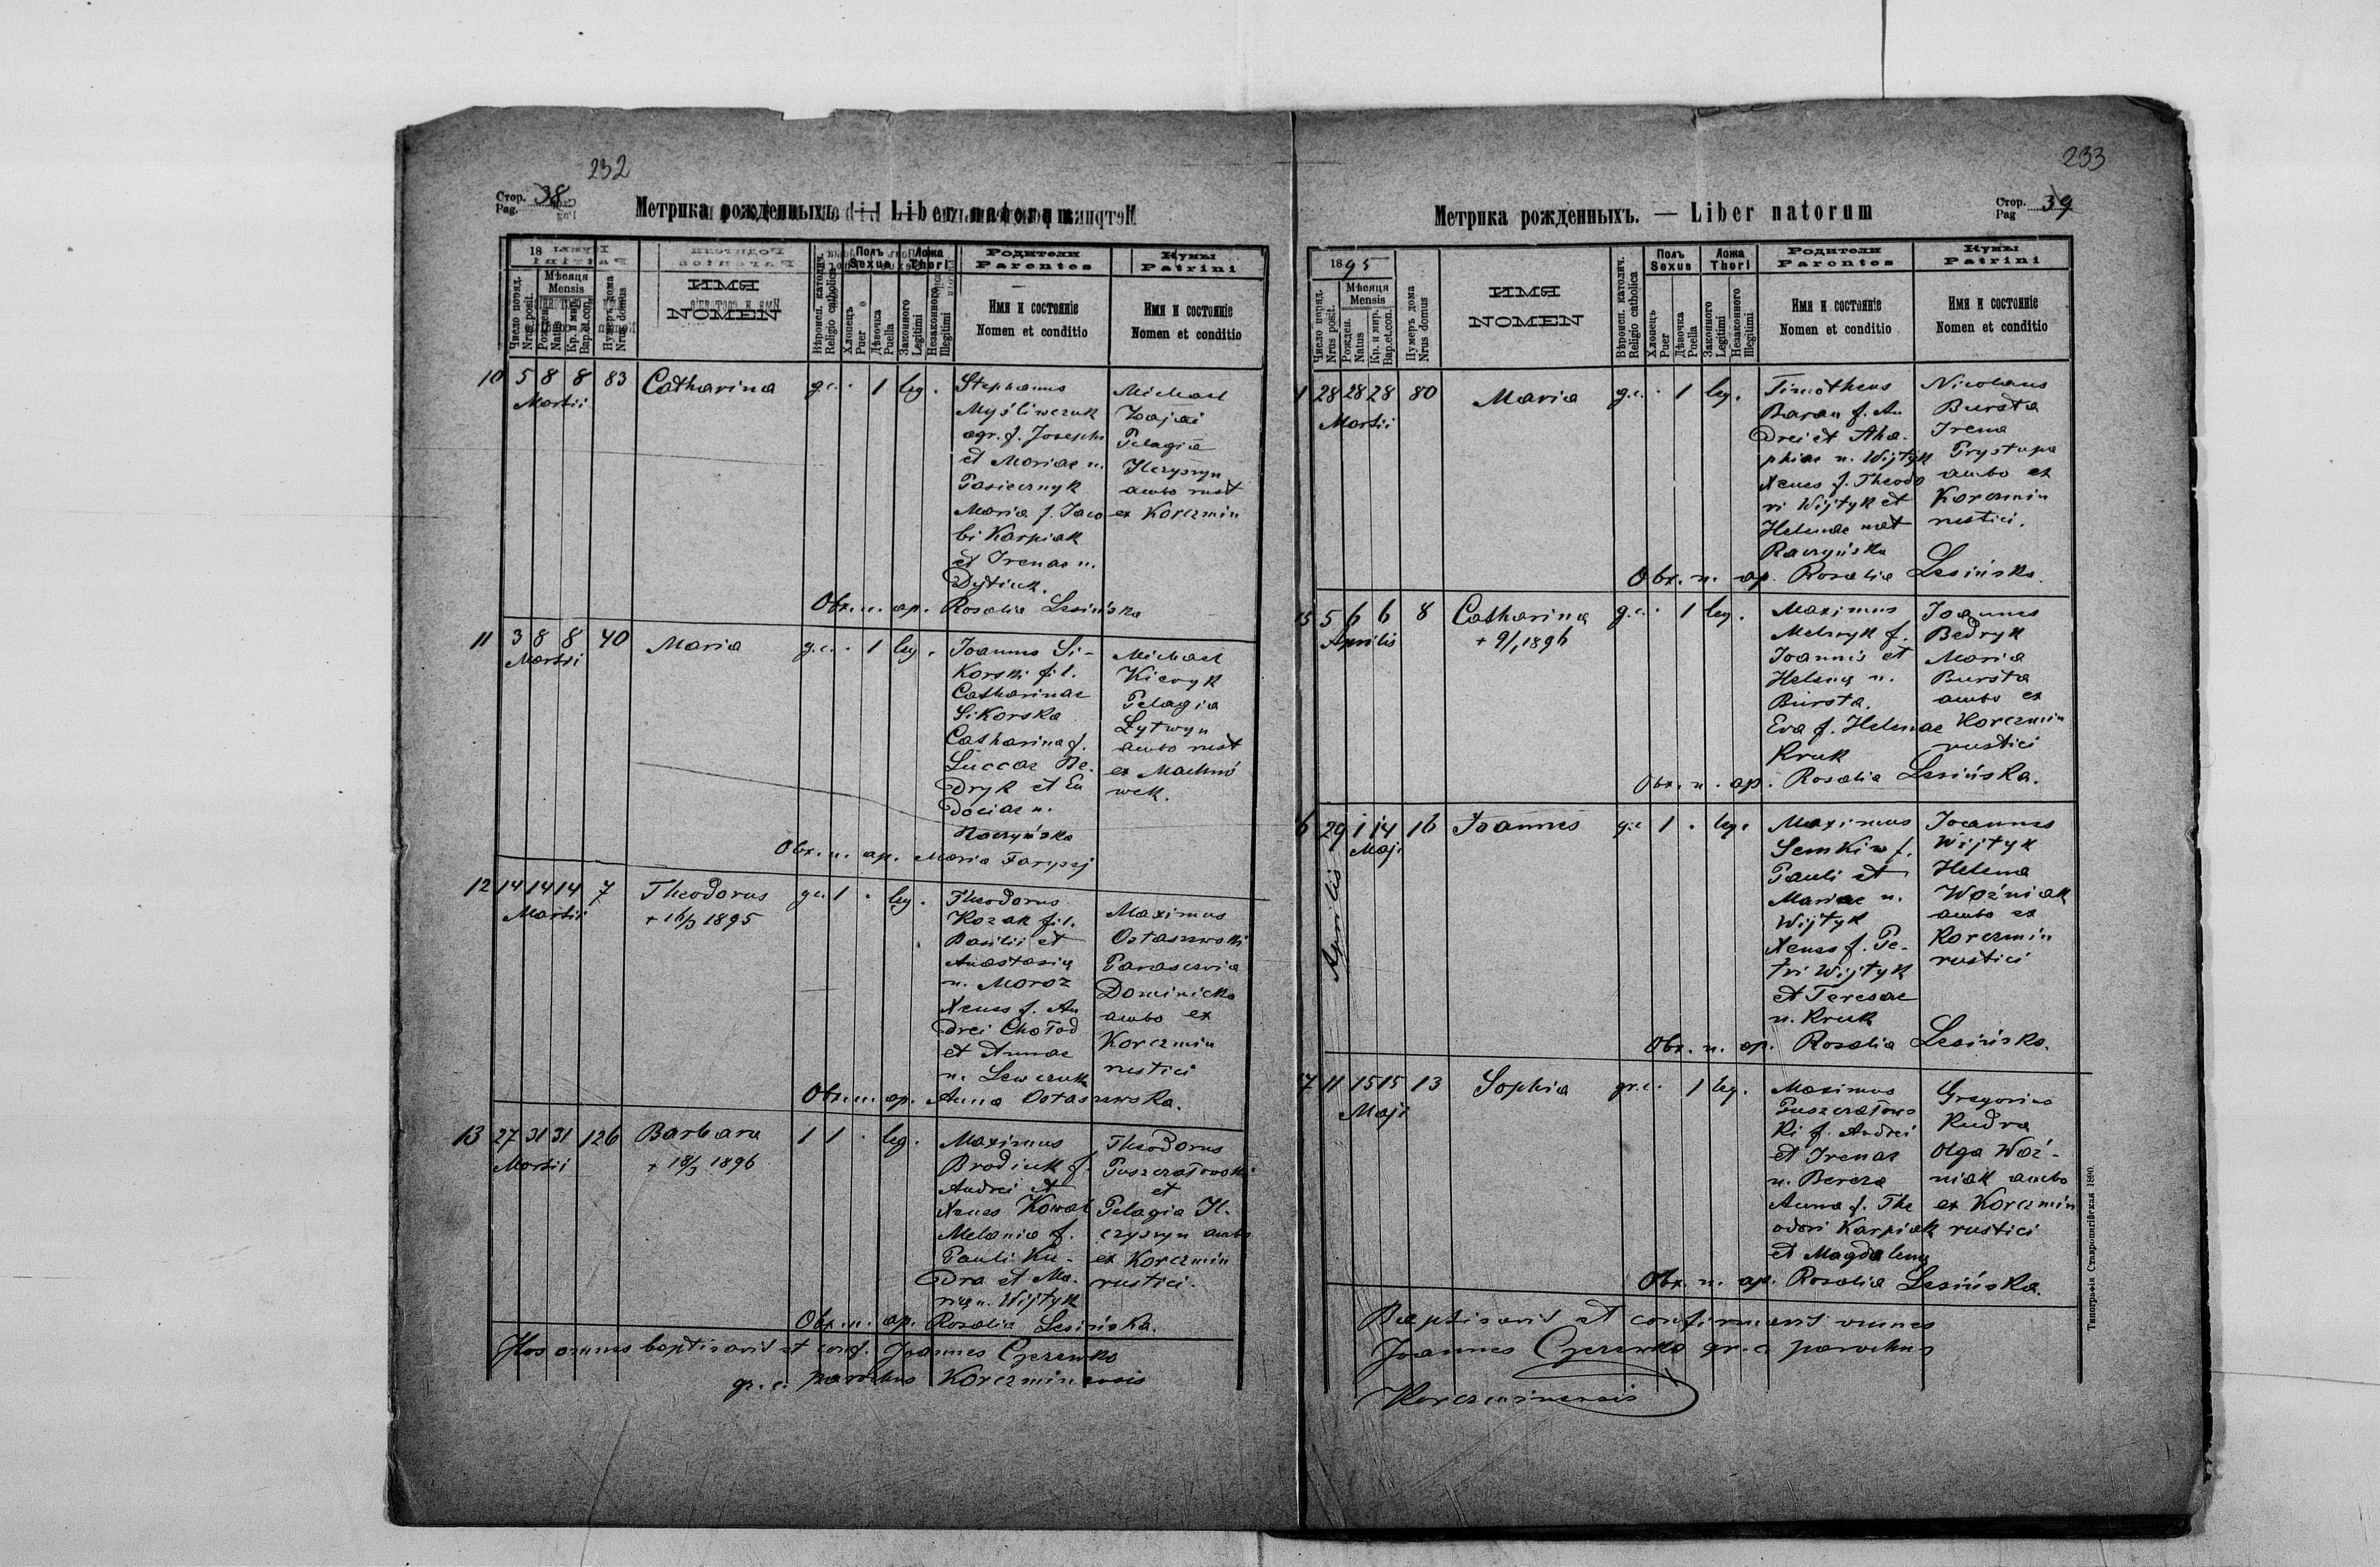 232
Стор. 38
Pag.
Метрика рожденныхъ. — Liber natorum
18
Число поряд.
Nrus posit.
Мѣсяця
Mensis
Рожден.
Natus
Кр. и мир.
Bap.et.con.
Нумеръ дома
Nrus domus
ИМЯ
NOMEN
Вѣроисп. католич.
Religio catholica
Полъ
Sexus
Хлопецъ
Puer
Дѣвочка
Puella
Ложа
Thori
Законного
Legitimi
Незаконного
Illegitimi
Родители
Parentes
Имя и состояніе
Nomen et conditio
Кумы
Patrini
Имя и состояніе
Nomen et conditio
10 5 8 8 83 Catharina g.c. . 1 leg.
Martii
Stephanus
Myśliwczuk
agr. f. Josephi
et Mariae n.
Pasiecznyk
Maria f. Jaco
bi Karpiak
et Irenae n.
Dytiuk.
Michael
Zajac
Pelagia
ambo rust
ex Korczmin
Obst. n. ap. Rosalia Lesińska
11 3 8 8 40 Maria g.c. . 1 leg.
Martii
Joannes Si-
korski fil.
Catharinae
Sikorska
Catharina f.
Luccae Be.
dryk et Eu
dociae n.
Raczyńska
Michael
Pelagia
Łytwyn
ambo rust
ex Machnó
wek.
Obst. n. ap. Maria
12 14 14 14 7 Theodorus gc. 1 . leg.
Martii
+ 16/3 1895
Theodorus
Kozak fil.
Basilii et
Anastasia
n. Moroz
Xenes f. An
drei Chołod
et Annae
n. Lewczuk
Maximus
Ostaszewski
Parascevia
Dominicka
ambo ex
Korczmin
rustici
Obst. n. ap. Anna Ostaszewska.
13 27 31 31 126 Barbara 1 1 . leg.
Martii
+ 18/3 1896
Maximus
Brodiuk f.
Andrei et
Xenes Kowal
Melania f.
Pauli Ku-
dra et Ma.
ria n. Wijtyk
Theodorus
Puszczałowski
et
Pelagia H.
czyszyn ambo
ex Korczmin
rustici.
Obst. n. ap. Rosalia Lesińska.
Hos omnes baptisavit et conf. Joannes Czerewko
gr. c. parochus Korczminensis
233
Стор. 39
Pag
Метрика рожденныхъ. — Liber natorum
1895
Число поряд.
Nrus posit.
Мѣсяця
Mensis
Рожден.
Natus
Кр. и мир.
Bap.et.con.
Нумеръ дома
Nrus domus
ИМЯ
NOMEN
Вѣроисп. католич.
Religio catholica
Полъ
Sexus
Хлопецъ
Puer
Дѣвочка
Puella
Ложа
Thori
Законного
Legitimi
Незаконного
Illegitimi
Родители
Parentes
Имя и состояніе
Nomen et conditio
Кумы
Patrini
Имя и состояніе
Nomen et conditio
1 28 28 28 80 Maria g.c. . 1 leg.
Martii
Timotheus
Baran f. An
drei et Aha-
phiae n. Wijtyk
Xenes f. Theodo
ri Wijtyk et
Helenae nat
Raczyńska
Nicolaus
Bursta
Irena
Prystupa
ambo ex
Korczmin
rustici.
Obst. n. ap. Rosalia Lesińska.
15 5 6 6 8 Catharina g.c. . 1 leg.
Aprilis
+ 9/1 1896
Maximus
Melnyk f.
Joannis et
Helena n.
Bursta.
Eva f. Helenae
Kruk
Joannes
Bedryk
Maria
Bursta
ambo ex
Korczmin
rustici
Obst. n. ap. Rosalia Lesińska.
6 29 1 14 16 Joannes g.c 1 . leg.
Aprilis
Maji
Maximus
Semkiw f.
Pauli et
Mariae n.
Wijtyk
Xenes f. Pe-
tri Wijtyk
et Teresae
n. Kruk
Joannes
Wijtyk
Helena
Woźniak
ambo ex
Korczmin
rustici
Obst. n. ap. Rosalia Lesińska.
17 11 15 15 13 Sophia gr.c. 1 leg.
Maji
Maximus
Puszczałows
ki f. Andrei
et Irenae
n. Bereza
Anna f. The
odori Karpiak
et Magdalena
Gregorius
Kudra
Olga Woź-
niak ambo
ex Korczmin
rustici
Obst. n. ap. Rosalia Lesińska.
Baptisavit et confirmavit omnes
Joannes Czerewko gr. c parochus
Korczminensis
Типографія Ставропигійская 1890.